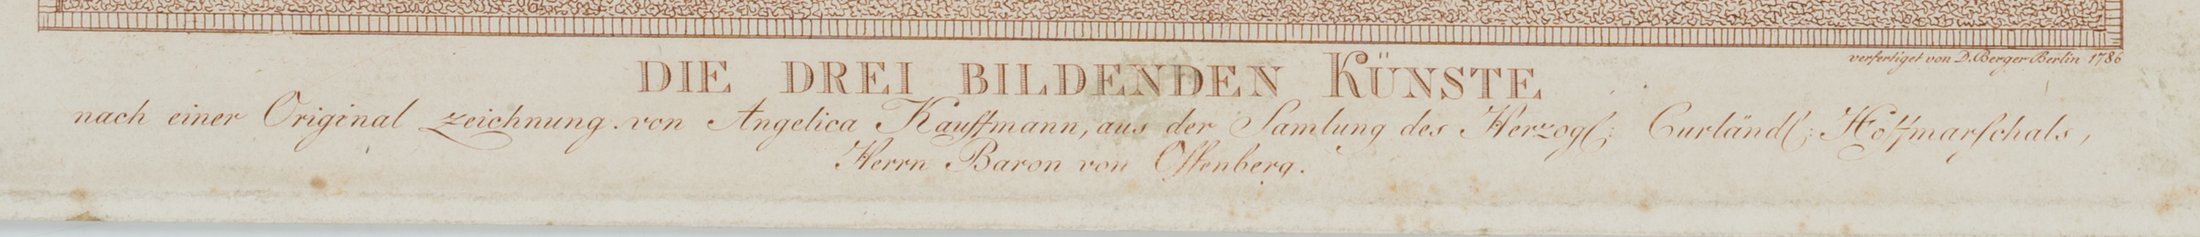 verfertiget von D. Berger Berlin 1786
DIE DREI BILDENDEN KÜNSTE
nach einer Original zeichnung. von Angelica Kauffmann, aus der Samlung des Herzogl: Curländl: Hoffmarſchals,
Herrn Baron von Offenberg.